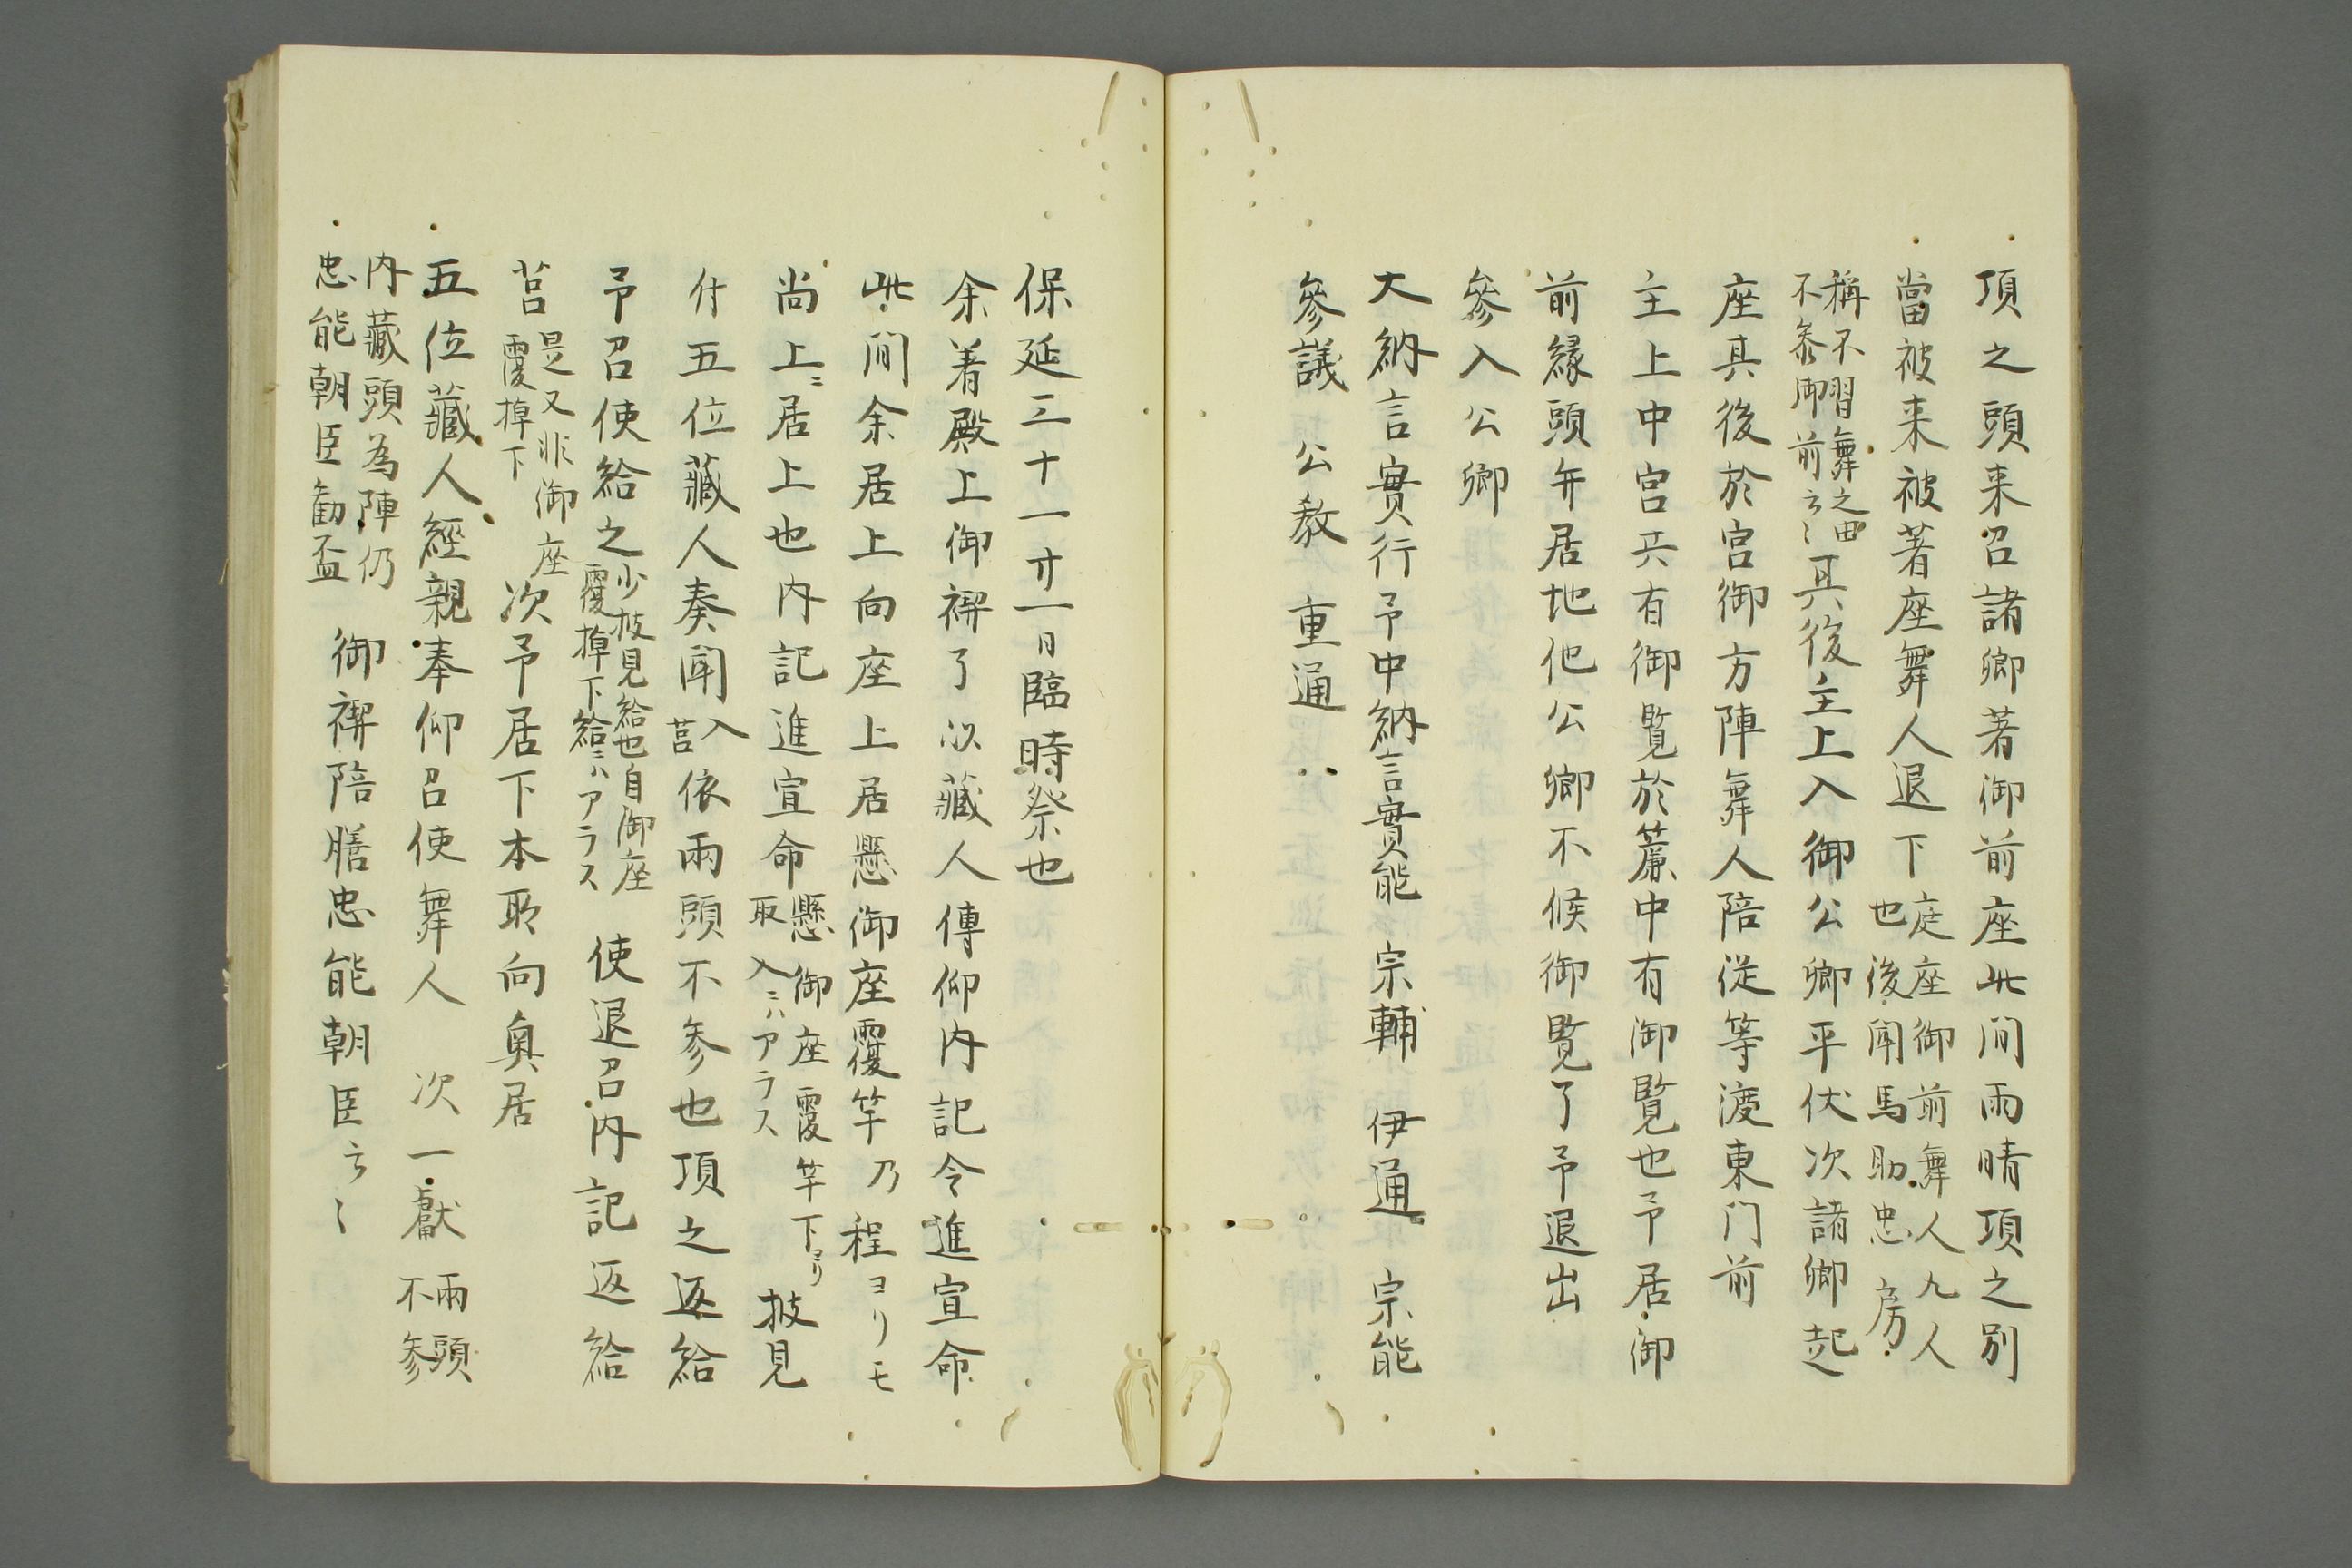 頂之頭来召諸卿著御前座此間雨晴頂之別
當被来被著座舞人退下庭座御前舞人九人
也後聞馬助忠房
稱不習舞之由
不参御前云〻其後主上入御公卿平伏次諸卿起
座其後於宮御方陣舞人陪従等渡東门前
主上中宮共有御覧於簾中有御覧也予居御
前縁頭并居地他公卿不候御覧了予退出
參入公卿
大納言實行予中納言實能 宗輔 伊通 宗能
參議 公教 重通
保延三十一廿一日臨時祭也
余着殿上御禊了以藏人傳仰内記令進宣命
此間余居上向座上居懸御座覆竿乃程ヨリモ
尚上ニ居上也内記進宣命懸御座覆竿下ヨリ
取入ニハアラス披見
付五位藏人奏聞入
莒依兩頭不参也頂之返給
予召使給之少披見給也自御座
覆掉下給ニハアラス 使退召内記返給
莒是又非御座
覆掉下 次予居下本取向奥居
五位藏人經親奉仰召使舞人 次一獻兩頭
不参
内藏頭為陣仍
忠能朝臣勧盃 御禊陪膳忠能朝臣云〻